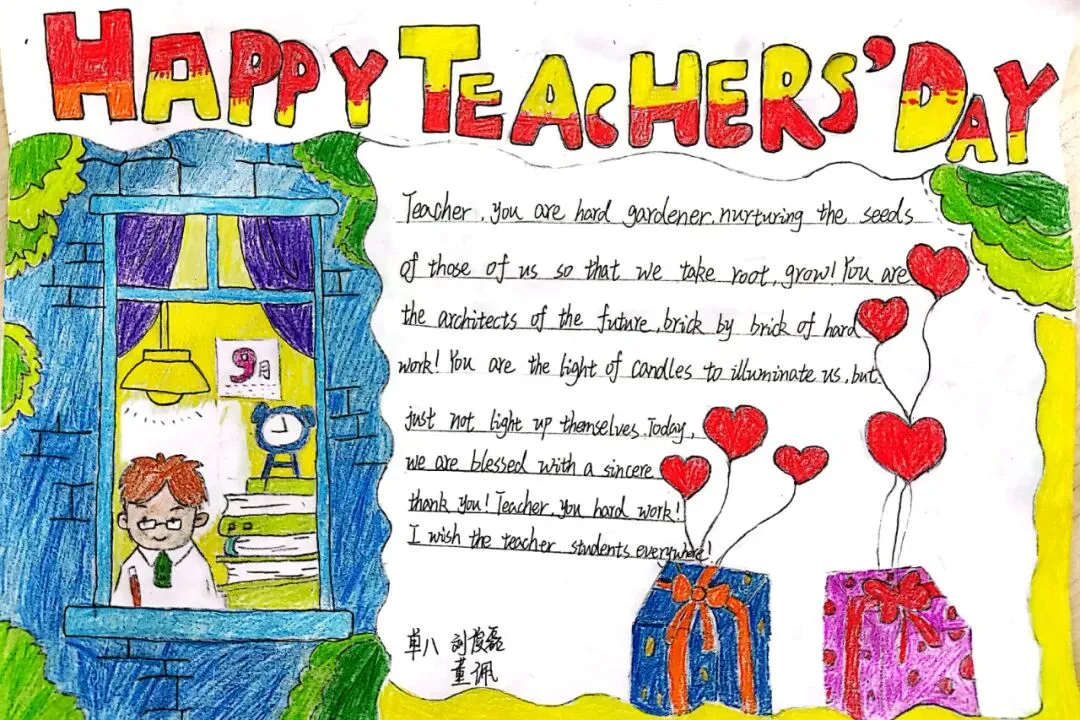 HAPPY TEACHERS' DAY
9月
Teacher, you are hard gardener, nurturing the seeds
of those of us so that we take root, grow! You are
the architects of the future, brick by brick of hard
work! You are the light of candles to illuminate us, but
just not light up themselves. Today,
we are blessed with a sincere
thank you! Teacher, you hard work!
I wish the teacher students everywhere!
单八 刘
董佩